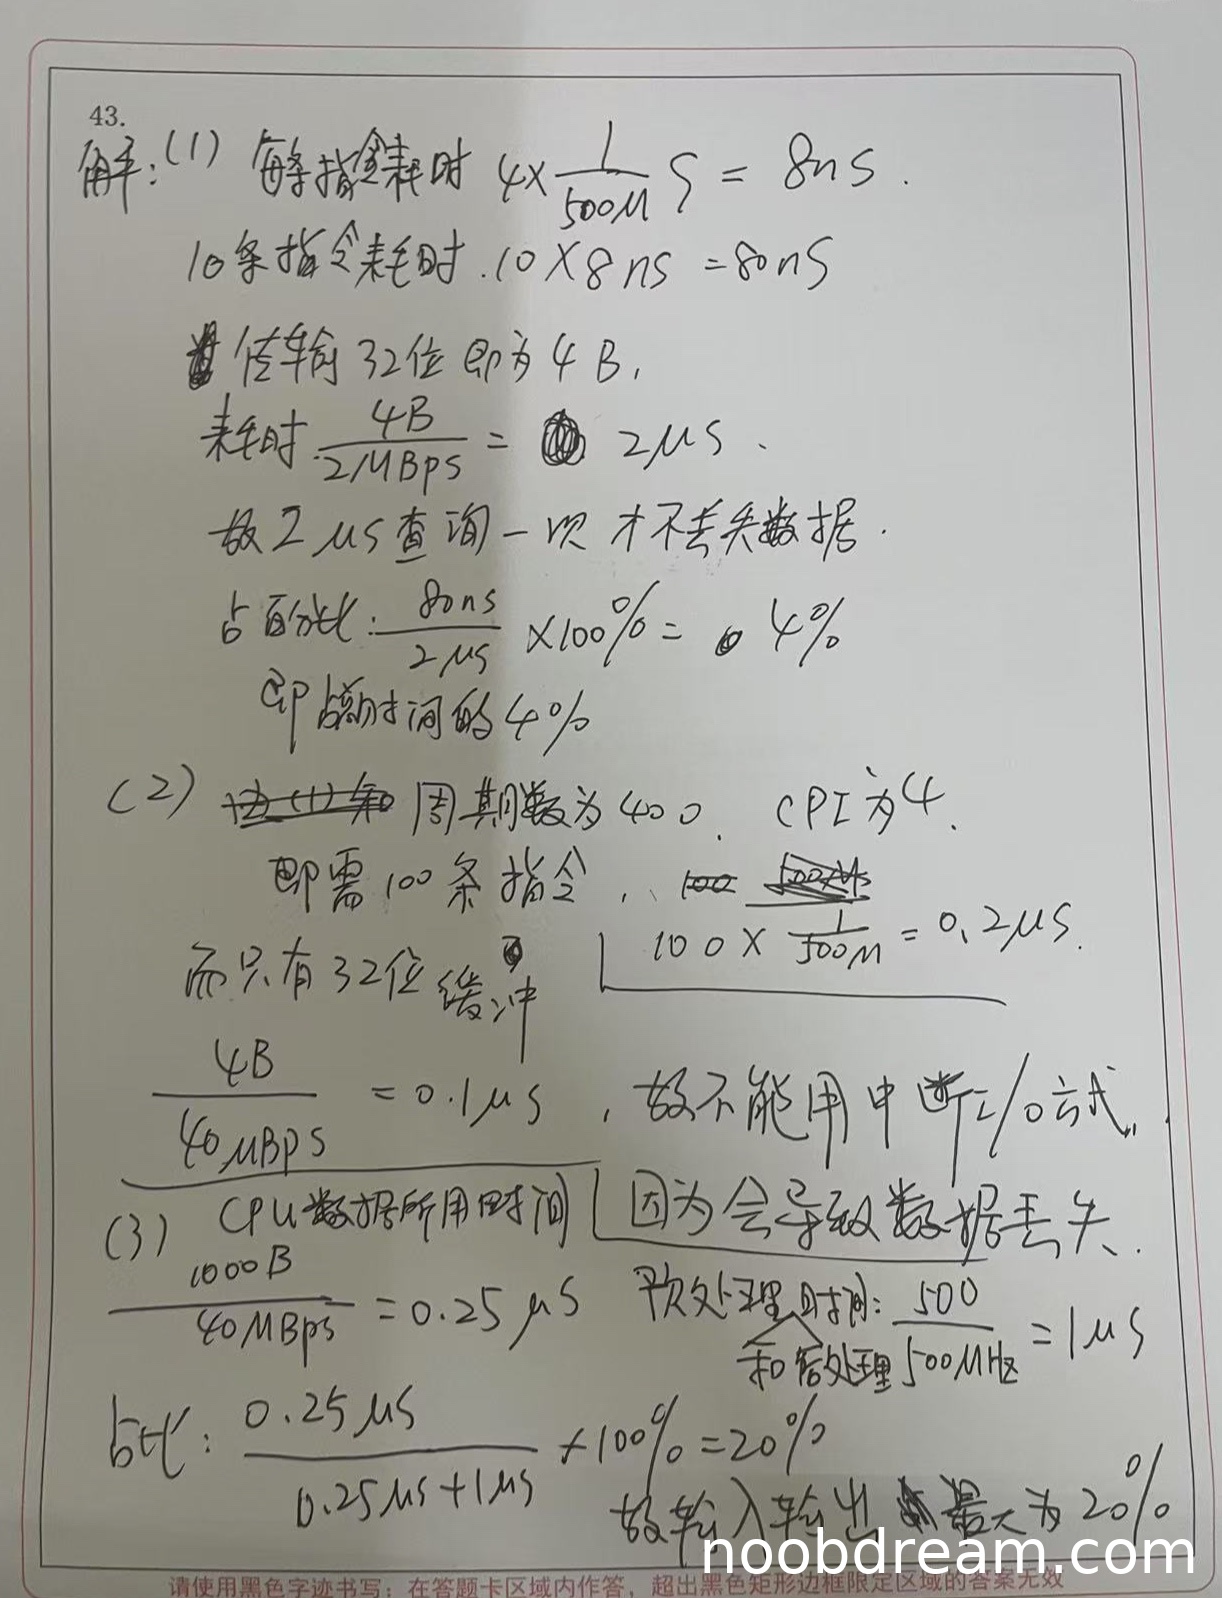 43.
解:(1) 每条指令耗时 4×1/500M S = 8ns.
10条指令耗时.10×8ns=80nS
传输32位即为4B,
耗时.4B/2MBps = 2μs.
故2μs查询一次才不丢失数据.
占百分比:80ns/2μs ×100%= 4%
即占时间的4%
(2) 由(1)知 周期数为400. CPI为4.
即需100条指令,
100× 1/500M =0.2μs.
而只有32位缓冲
4B/40MBPS =0.1μs, 故不能用中断I/O方式.
因为会导致数据丢失.
(3) CPU数据所用时间
1000B/40MBps =0.25μs
预处理和后处理时间:500/500MHz =1μs
占比:0.25μs/0.25μs+1μs ×100%=20%
故输入输出最大为20%
noobdream.com
请使用黑色字迹书写;在答题卡区域内作答,超出黑色矩形边框限定区域的答案无效